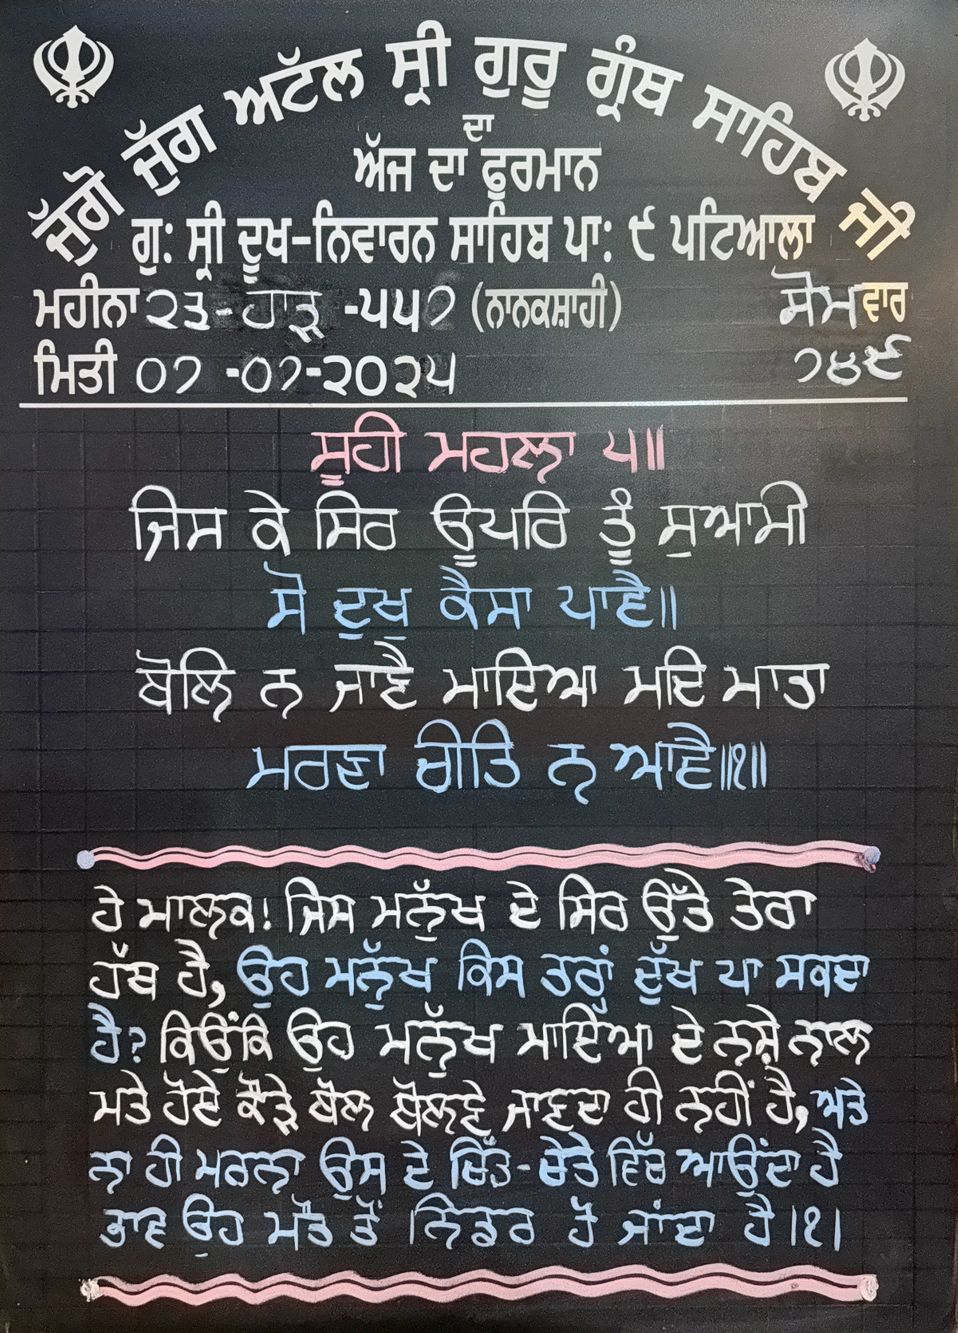 ਜੁੱਗੋ ਜੁੱਗ ਅਟੱਲ ਸ੍ਰੀ ਗੁਰੂ ਗ੍ਰੰਥ ਸਾਹਿਬ ਜੀ
ਦਾ
ਅੱਜ ਦਾ ਫੁਰਮਾਨ
ਗੁ: ਸ੍ਰੀ ਦੂਖ-ਨਿਵਾਰਨ ਸਾਹਿਬ ਪਾ: ੯ ਪਟਿਆਲਾ
ਮਹੀਨਾ ੨੩-ਹਾੜ੍ਹ -੫੫੭ (ਨਾਨਕਸ਼ਾਹੀ) ਸੋਮਵਾਰ
ਮਿਤੀ ੦੭ -੦੭-੨੦੨੫ ੭੪੯
ਸੂਹੀ ਮਹਲਾ ੫॥
ਜਿਸ ਕੇ ਸਿਰ ਊਪਰਿ ਤੂੰ ਸੁਆਮੀ
ਸੋ ਦੁਖੁ ਕੈਸਾ ਪਾਵੈ॥
ਬੋਲਿ ਨ ਜਾਵੈ ਮਾਇਆ ਮਦਿ ਮਾਤਾ
ਮਰਣਾ ਚੀਤਿ ਨ ਆਵੈ॥੧॥
ਹੇ ਮਾਲਕ! ਜਿਸ ਮਨੁੱਖ ਦੇ ਸਿਰ ਉੱਤੇ ਤੇਰਾ
ਹੱਥ ਹੈ, ਉਹ ਮਨੁੱਖ ਕਿਸ ਤਰ੍ਹਾਂ ਦੁੱਖ ਪਾ ਸਕਦਾ
ਹੈ? ਕਿਉਂਕਿ ਉਹ ਮਨੁੱਖ ਮਾਇਆ ਦੇ ਨਸ਼ੇ ਨਾਲ
ਮਤੇ ਹੋਏ ਕੌੜੇ ਬੋਲ ਬੋਲਣੇ ਜਾਣਦਾ ਹੀ ਨਹੀਂ ਹੈ, ਅਤੇ
ਨਾ ਹੀ ਮਰਨਾ ਉਸ ਦੇ ਚਿੱਤ-ਚੇਤੇ ਵਿੱਚ ਆਉਂਦਾ ਹੈ
ਭਾਵ ਉਹ ਮੌਤ ਤੋਂ ਨਿਡਰ ਹੋ ਜਾਂਦਾ ਹੈ।੧।